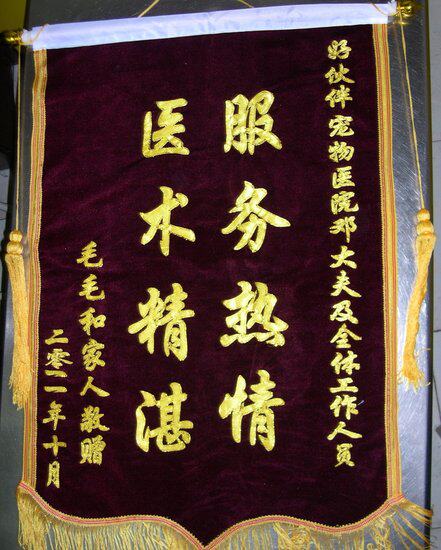 好伙伴宠物医院邓大夫及全体工作人员
服务热情
医术精湛
毛毛和家人敬赠
二零一一年十月